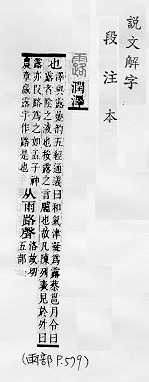 說文解字
段注本
露 潤澤
也 澤與露曡韵五經通義曰和氣津凝爲露蔡邕月令曰
露者陰之液也按露之言臚也故凡陳列表見於外曰
露亦叚路爲之如孟子神
農章羸露字作路是也
从雨路聲
洛故切
五部
(雨部 P.579)